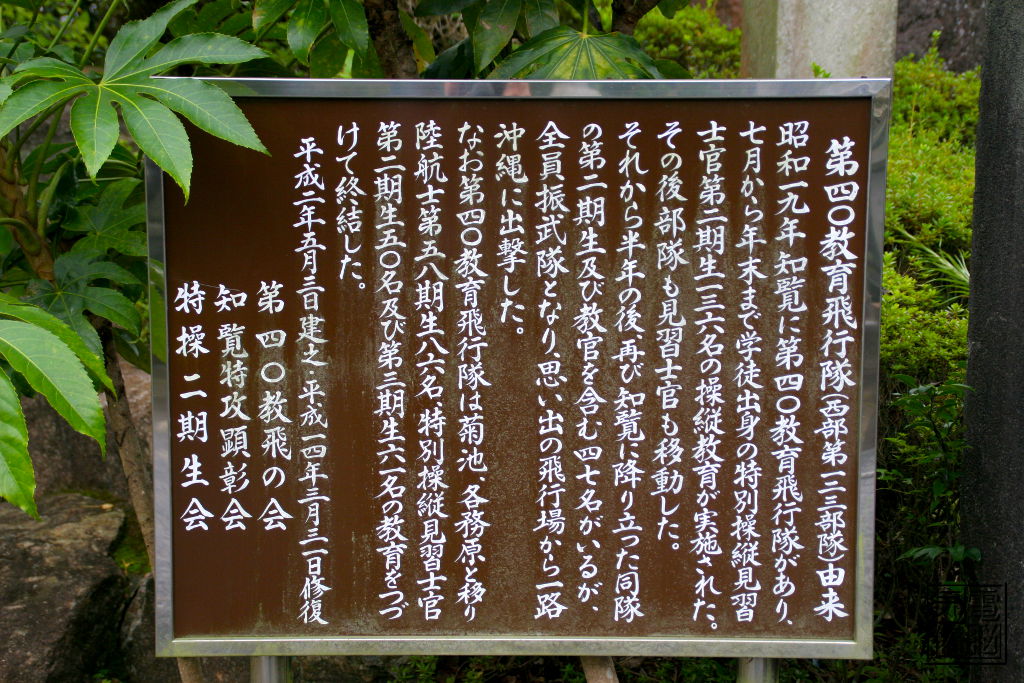 第四〇教育飛行隊(西部第一二三部隊)由来
昭和一九年 知覧に第四〇教育飛行隊があり、
七月から年末まで学徒出身の特別操縦見習
士官第二期生一三六名の操縦教育が実施された。
その後部隊も見習士官も移動した。
それから半年の後、再び知覧に降り立った同隊
の第二期生及び教官を含む四七名がいるが、
全員振武隊となり、思い出の飛行場から一路
沖縄に出撃した。
なお第四〇教育飛行隊は菊池、各務原と移り
陸航士第五八期生八六名、特別操縦見習士官
第二期生五〇名及び第三期生六一名の教育をつづ
けて終結した。
平成二年五月三日建之・平成一四年三月三一日修復
第四〇教飛の会
知覧特攻顕彰会
特操二期生会